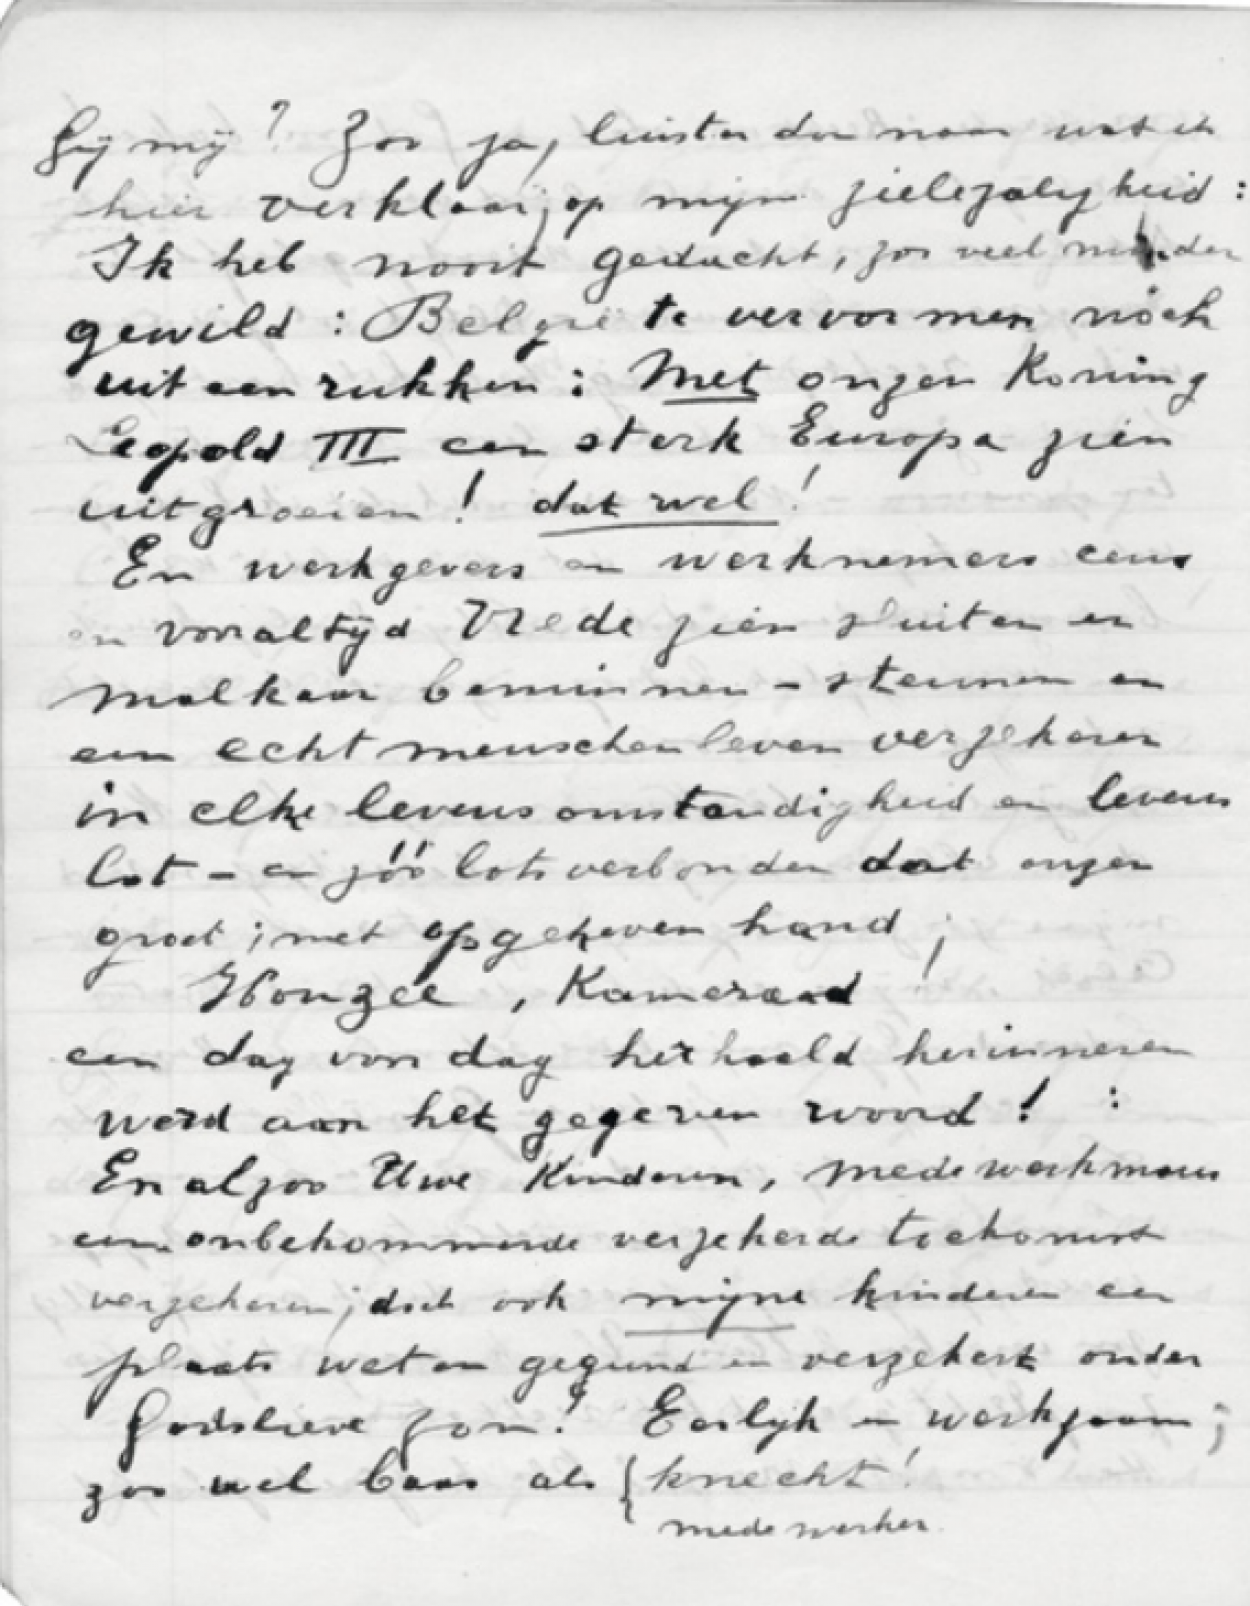 Gij mij? Zoo ja, luister dan naar wat ik
hier verklaar, op mijn zielezaligheid:
Ik heb nooit gedacht, zoo veel minder
gewild: België te vervormen nòch
uiteenrukken: Met onzen Koning
Leopold III een sterk Europa zien
uitgroeien! dat wel!
En werkgevers en werknemers eens
en vooraltijd Vrede zien sluiten en
malkaar beminnen - steunen en
een echt menschenleven verzekeren
in elke levensomstandigheid en levens
lot - en zóó lotsverbonden dat onzen
groet; met opgeheven hand;
Houzee, Kameraad!
een dag voor dag herhaald herinneren
werd aan het gegeven woord! :
En alzoo Uwe Kinderen, medewerkmans
een onbekommerde verzekerde toekomst
verzekeren; doch ook mijne kinderen een
plaats weten gegund en verzekert onder
Godslieve zon! Eerlijk en werkzaam;
zoo wel baas als { knecht!
medewerker